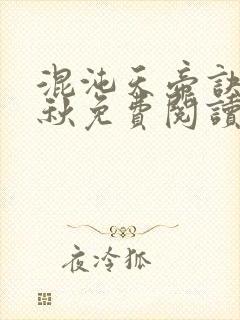 混沌天帝訣
秋免費閱讀
夜冷狐